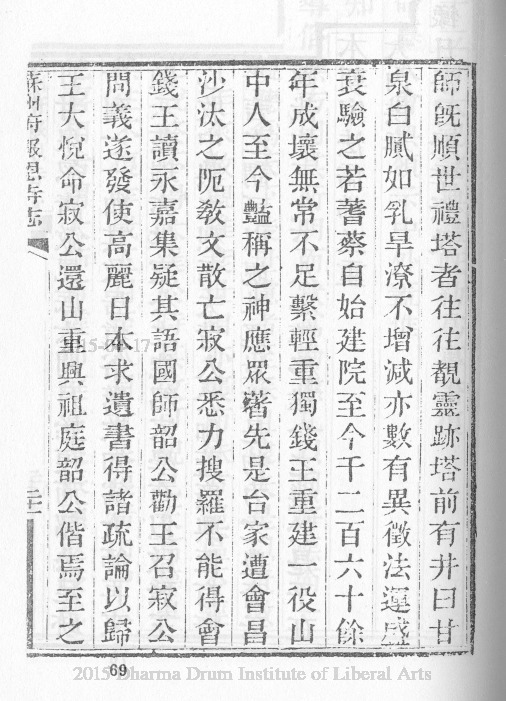 師旣順世禮塔者往往覩靈跡塔前有井曰甘
泉白膩如乳旱潦不增減亦數有異徵法運盛
衰驗之若蓍蔡自始建院至今千二百六十餘
年成壞無常不足繫輕重獨錢王重建一役山
中人至今豔稱之神應眾著先是台家遭會昌
沙汰之阨敎文散亡寂公悉力搜羅不能得會
錢王讀永嘉集疑其語國師韶公勸王召寂公
問義遂發使高麗日本求遺書得諸疏論以歸
王大悅命寂公還山重興祖庭韶公偕焉至之
蘇州府報恩寺志
69
2015 Dharma Drum Institute of Liberal Arts